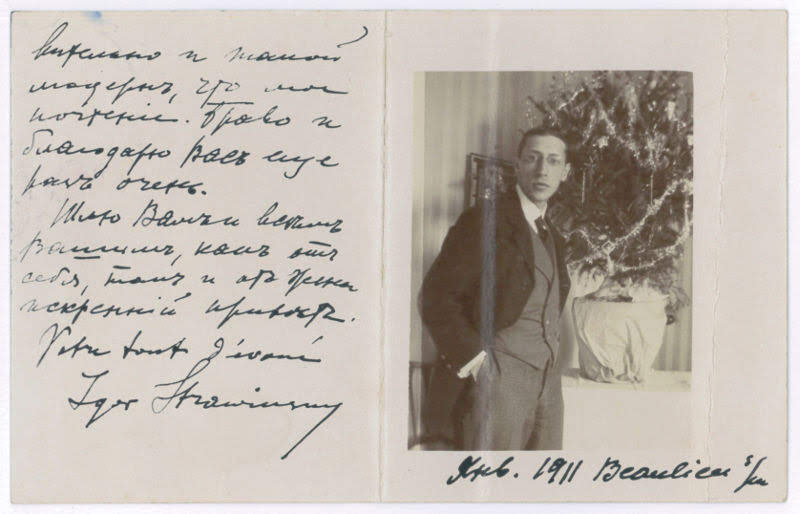 вительно и такой
модернъ, что мое
почтеніе. Браво и
благодарю Васъ еще
разъ очень.
Шлю Вамъ и всѣмъ
Вашимъ, какъ отъ
себя, такъ и отъ жены
искренній привѣтъ.
Votre tout dévoué
Igor Strawinsky
Янв. 1911 Beaulieu s/m